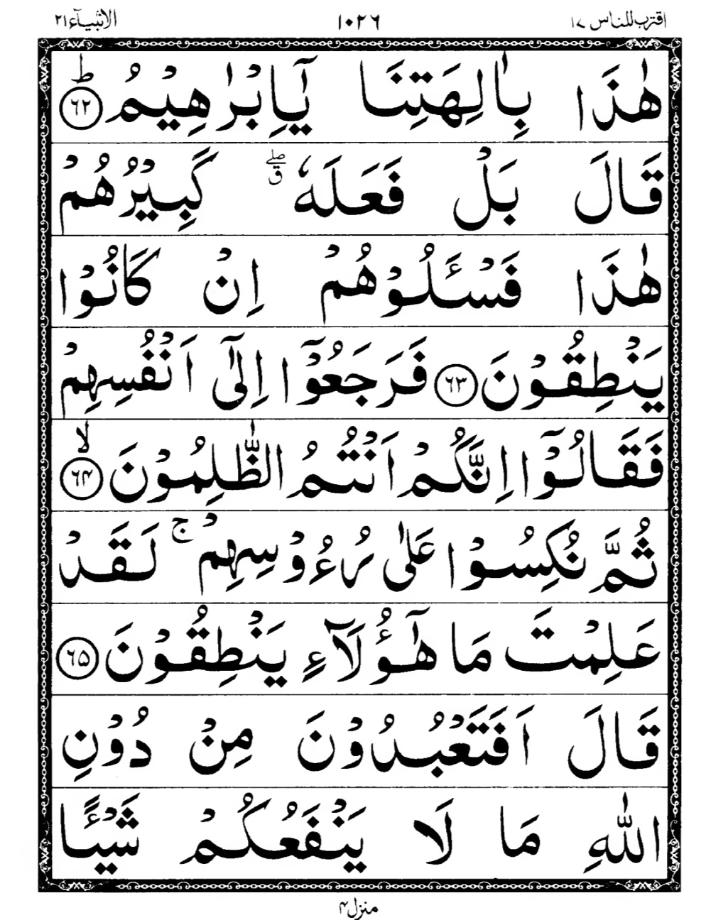 اقترب للناس ١٧ ١٠٢٦ الانبیآء ٢١
هٰذَا بِاٰلِهَتِنَا یٰۤاِبْرٰهِیْمُ ؕ ﴿۶۲﴾
قَالَ بَلْ فَعَلَهٗ ۖۗ كَبِیْرُهُمْ
هٰذَا فَسْـَٔلُوْهُمْ اِنْ كَانُوْا
یَنْطِقُوْنَ ﴿۶۳﴾ فَرَجَعُوْۤا اِلٰۤی اَنْفُسِهِمْ
فَقَالُوْۤا اِنَّكُمْ اَنْتُمُ الظّٰلِمُوْنَ ۙ ﴿۶۴﴾
ثُمَّ نُكِسُوْا عَلٰی رُءُوْسِهِمْ ۚ لَقَدْ
عَلِمْتَ مَا هٰۤؤُلَآءِ یَنْطِقُوْنَ ﴿۶۵﴾
قَالَ اَفَتَعْبُدُوْنَ مِنْ دُوْنِ
اللّٰهِ مَا لَا یَنْفَعُكُمْ شَیْـًٔا
منزل ۴